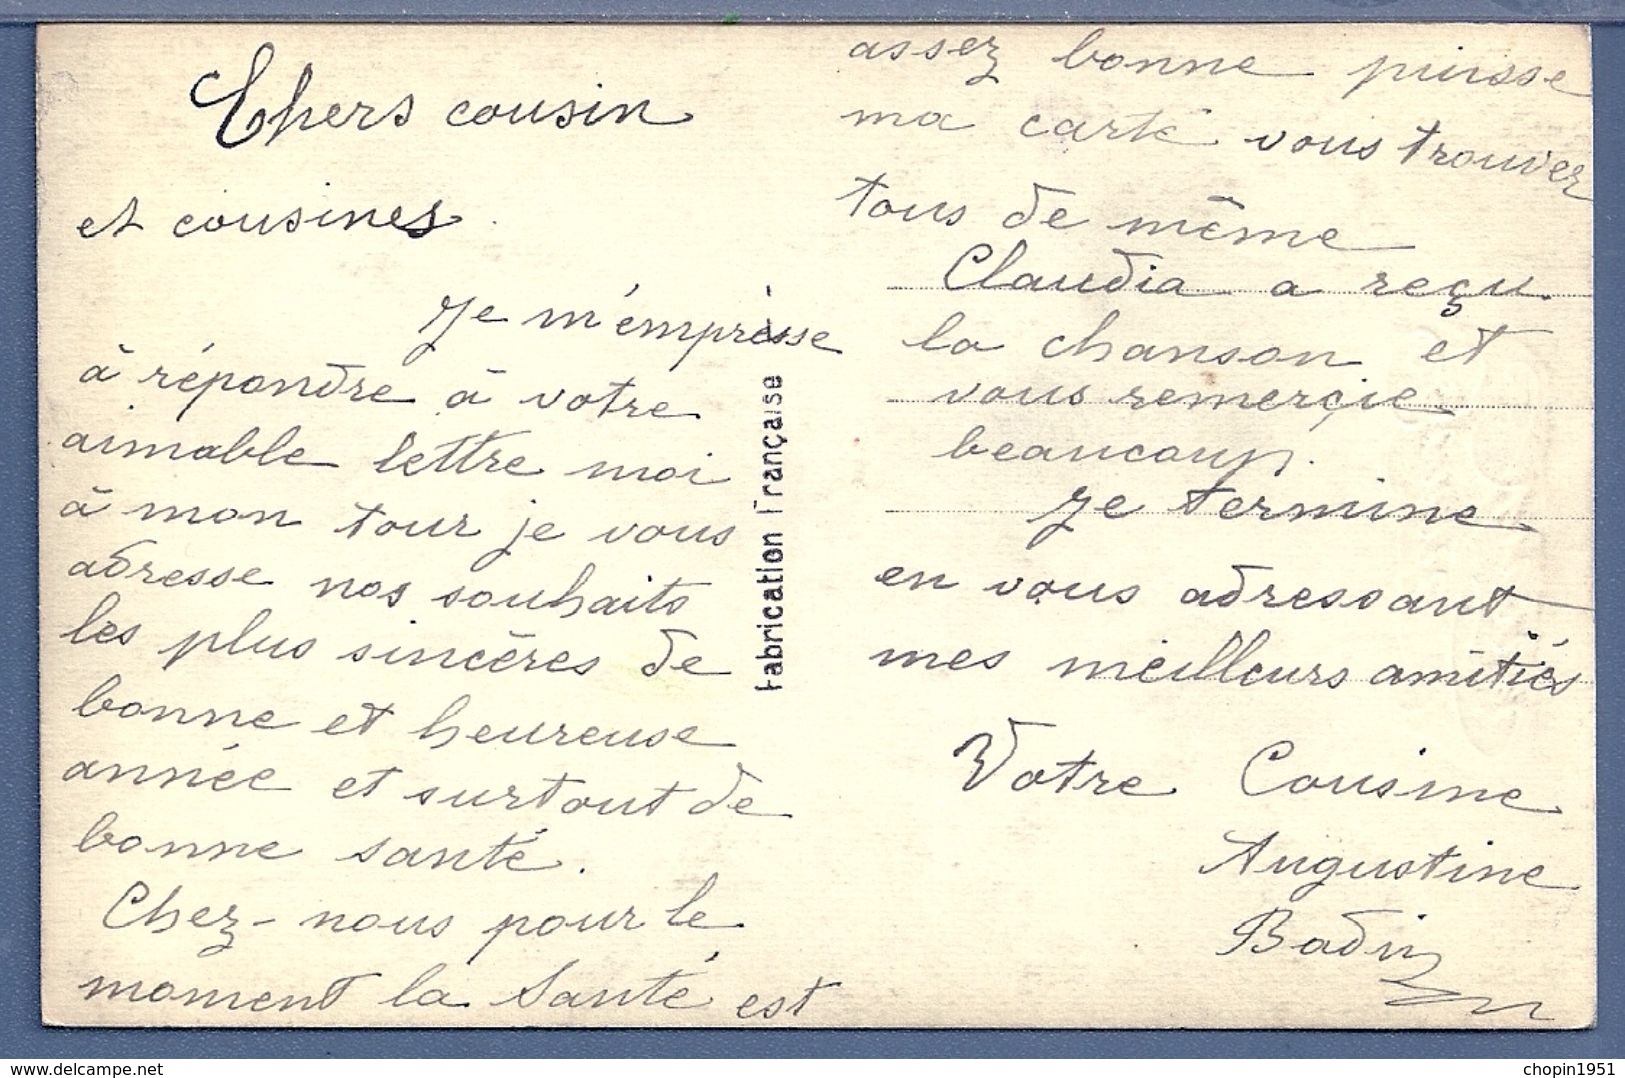 Chers cousin
et cousines.
Je m'émprèsse
à répondre à votre
aimable lettre moi
à mon tour je vous
adresse nos souhaits
les plus sincères de
bonne et heureuse
année et surtout de
bonne santé.
Chez-nous pour le
moment la Santé est
Fabrication Française
assez bonne puisse
ma carte vous trouver
tous de même
Claudia a reçu
la chanson et
vous remerçie
beaucoup.
Je termine
en vous adressant
mes meilleurs amitiés
Votre Cousine
Augustine
Badin
delcampe.net
chopin1951